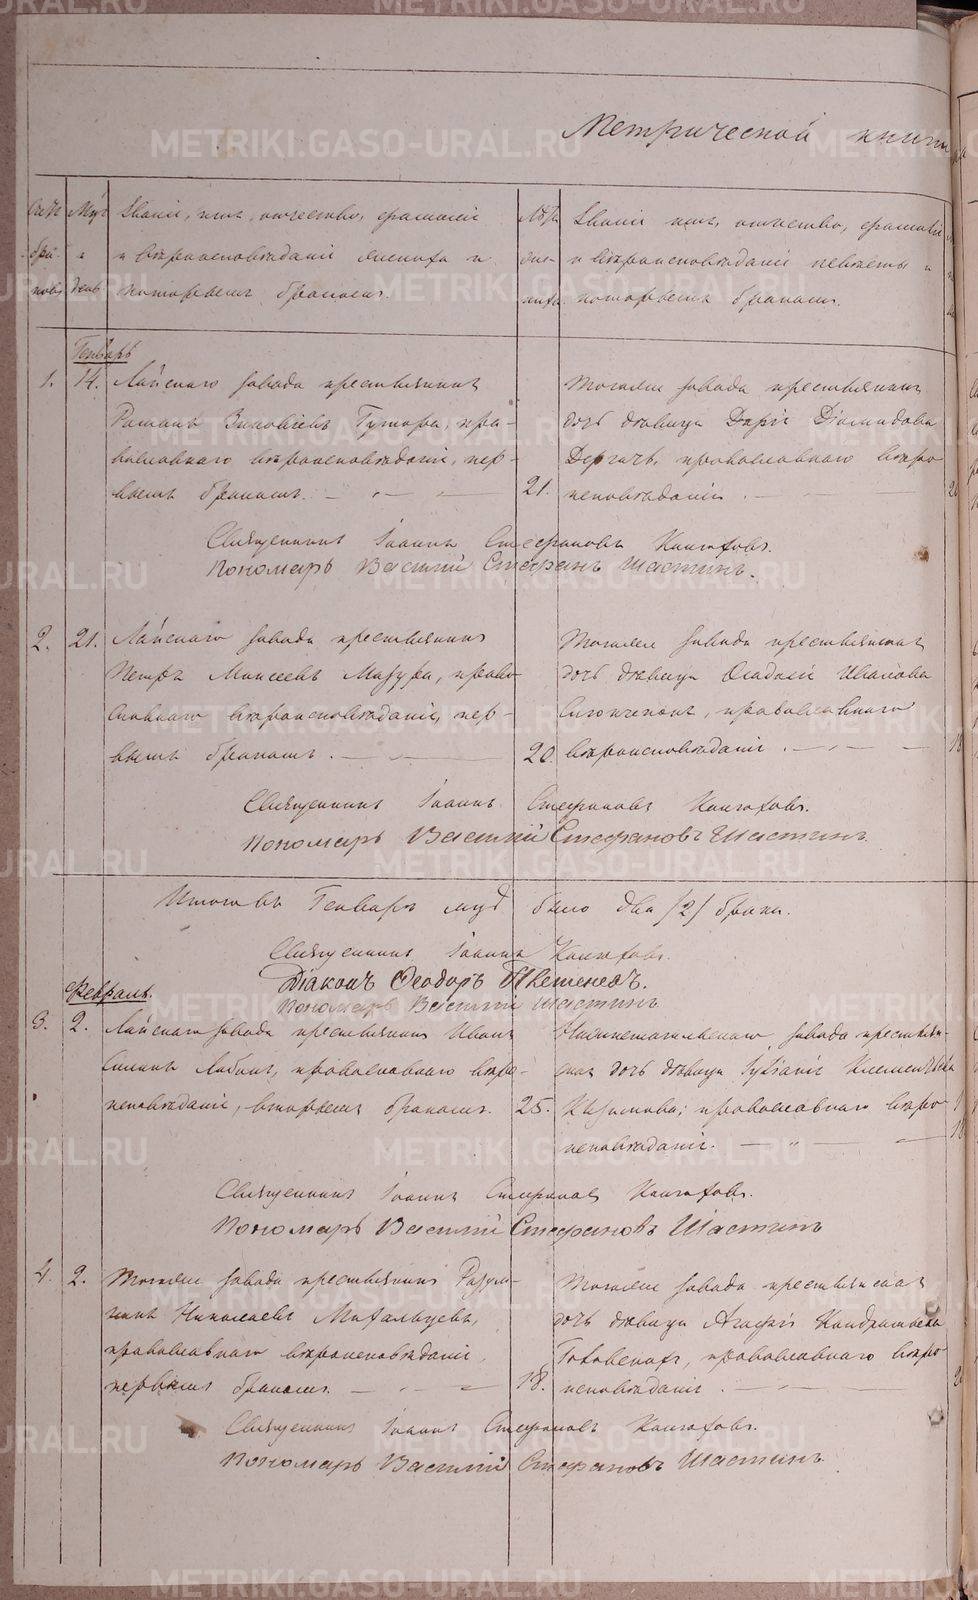 METRIKI.GASO-URAL.RU
Метрической книги
Счетъ браковъ
Мѣс. и день
Званiе, имя, отчество, фамилiя
и вѣроисповѣданiе жениха и
которымъ бракомъ.
Лѣта жениха
Званiе имя, отчество, фамилiя
и вѣроисповѣданiе невѣсты и
которымъ бракомъ.
Генварь
1. 14. Лайскаго завода крестьянинъ
Романъ Зиновiевъ Гутора, пра-
вославнаго вѣроисповѣданiя, пер-
вымъ бракомъ. 21.
Тогоже завода крестьянская
дочь дѣвица Дарiя Дiомидова
Дергачъ, православнаго вѣро
исповѣданiя.
Священникъ Iоаннъ Стефановъ
Пономарь Василiй Стефановъ Шастинъ.
2. 21. Лайскаго завода крестьянинъ
Петръ Моисеевъ Мазура, право
славнаго вѣроисповѣданiя, пер-
вымъ бракомъ. 20.
Тогоже завода крестьянская
дочь дѣвица Иванова
православнаго
вѣроисповѣданiя.
Священникъ Iоаннъ Стефановъ
Пономарь Василiй Стефановъ Шастинъ.
Итого въ Генварѣ мцѣ было два /2/ брака.
Священникъ Iоаннъ
Дiаконъ Ѳеодоръ
Пономарь Василiй Шастинъ
Февраль.
3. 2. Лайскаго завода крестьянинъ Иванъ
православнаго вѣро-
исповѣданiя, вторымъ бракомъ. 25.
Нижнетагильскаго завода крестьян-
ская дочь дѣвица Климентьева
православнаго вѣро
исповѣданiя.
Священникъ Iоаннъ Стефановъ
Пономарь Василiй Стефановъ Шастинъ
4. 2. Тогоже завода крестьянинъ
Николаевъ
православнаго вѣроисповѣданiя,
первымъ бракомъ. 18.
Тогоже завода крестьянская
дочь дѣвица Агафiя Кондратьева
православнаго вѣро
исповѣданiя.
Священникъ Iоаннъ Стефановъ
Пономарь Василiй Стефановъ Шастинъ